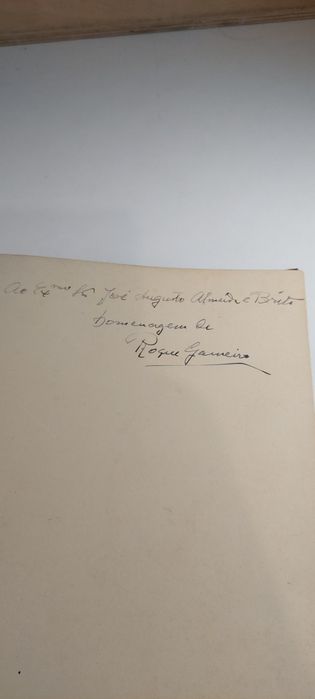 Ao Exmo Sr José Augusto Almeida e Brito
Homenagem de
Roque Gameiro